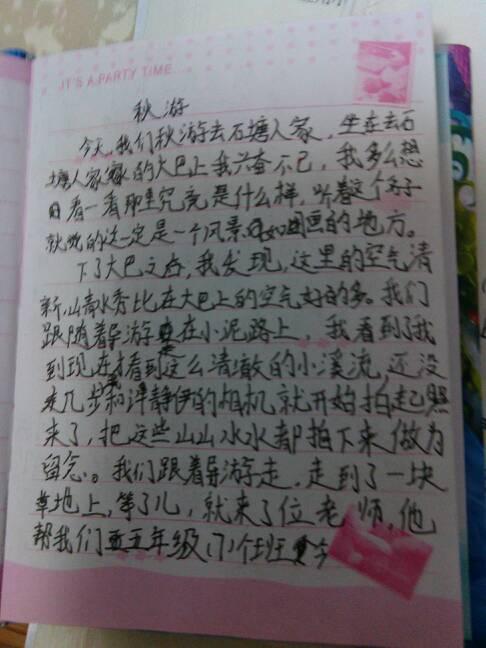 IT'S A PARTY TIME...
秋游
今天,我们秋游去石塘人家,坐在去石
塘人家的大巴上我兴奋不已,我多么想
看一看那里究竟是什么样,听着这个名字
就觉的这一定是一个风景如画的地方。
下了大巴之后,我发现,这里的空气清
新,山青水秀比在大巴上的空气好的多。我们
跟随着导游走在小泥路上,我看到了我
到现在才看到这么清澈的小溪流,还没
走几步和许静伊的相机就开始拍起照
来了,把这些山山水水都拍下来做为
留念。我们跟着导游走,走到了一块
草地上,等了儿,就来了位老师,他
帮我们五年级(7)个班